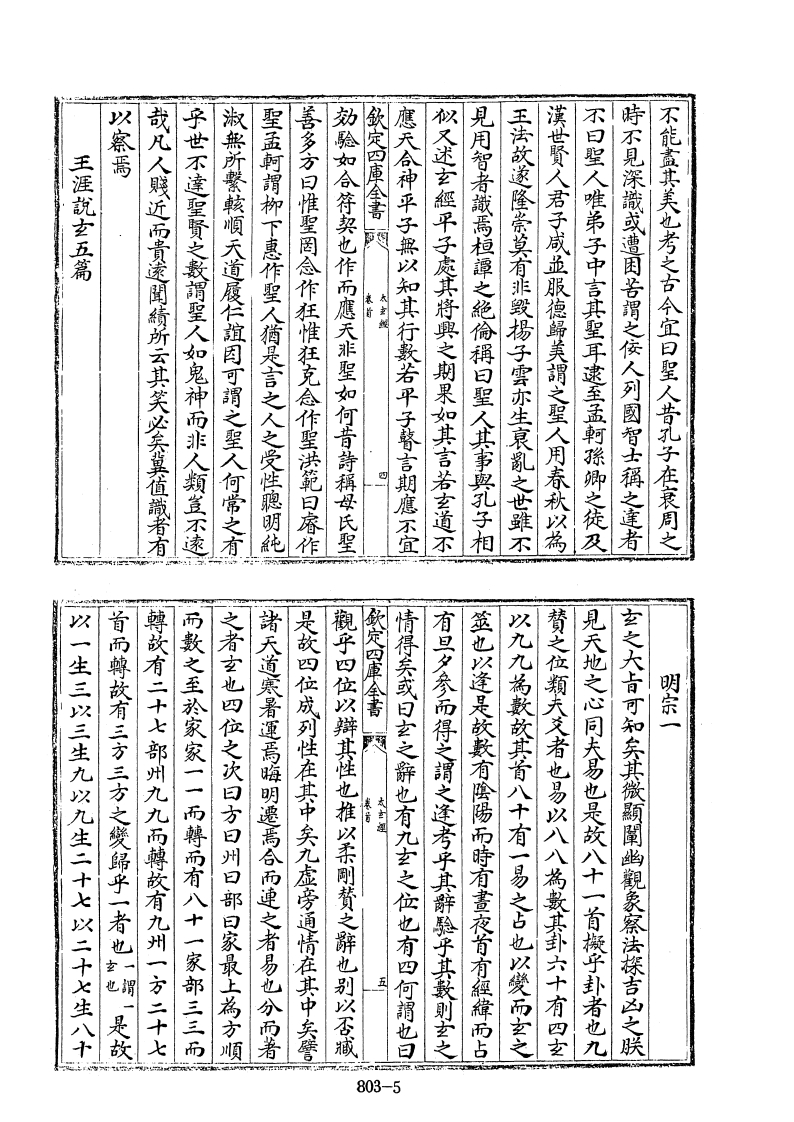 不能盡其美也考之古今宜曰聖人昔孔子在衰周之
時不見深識或遭困苦謂之佞人列國智士稱之達者
不曰聖人唯弟子中言其聖耳逮至孟軻孫卿之徒及
漢世賢人君子咸並服德歸美謂之聖人用春秋以為
王法故遂隆崇莫有非毀揚子雲亦生衰亂之世雖不
見用智者識焉桓譚之絶倫稱曰聖人其事與孔子相
似又述玄經平子處其將興之期果如其言若玄道不
應天合神平子無以知其行數若平子瞽言期應不宜
欽定四庫全書
太玄經
卷首
四
効驗如合符契也作而應天非聖如何昔詩稱母氏聖
善多方曰惟聖罔念作狂惟狂克念作聖洪範曰睿作
聖孟軻謂柳下惠作聖人猶是言之人之受性聰明純
淑無所繫輆順天道履仁誼因可謂之聖人何常之有
乎世不達聖賢之數謂聖人如鬼神而非人類豈不遠
哉凡人賤近而貴遠聞績所云其笑必矣冀值識者有
以察焉
王涯說玄五篇
明宗一
玄之大㫖可知矣其微顯闡幽觀象察法探吉凶之朕
見天地之心同夫易也是故八十一首擬乎卦者也九
贊之位類夫爻者也易以八八為數其卦六十有四玄
以九九為數故其首八十有一易之占也以變而玄之
筮也以逢是故數有陰陽而時有晝夜首有經緯而占
有旦夕參而得之謂之逢考乎其辭驗乎其數則玄之
情得矣或曰玄之辭也有九玄之位也有四何謂也曰
欽定四庫全書
太玄經
卷首
五
觀乎四位以辯其性也推以柔剛贊之辭也别以否臧
是故四位成列性在其中矣九虛旁通情在其中矣譬
諸天道寒暑運焉晦明遷焉合而連之者易也分而著
之者玄也四位之次曰方曰州曰部曰家最上為方順
而數之至於家家一一而轉而有八十一家部三三而
轉故有二十七部州九九而轉故有九州一方二十七
首而轉故有三方三方之變歸乎一者也一謂一玄也是故
以一生三以三生九以九生二十七以二十七生八十
803-5